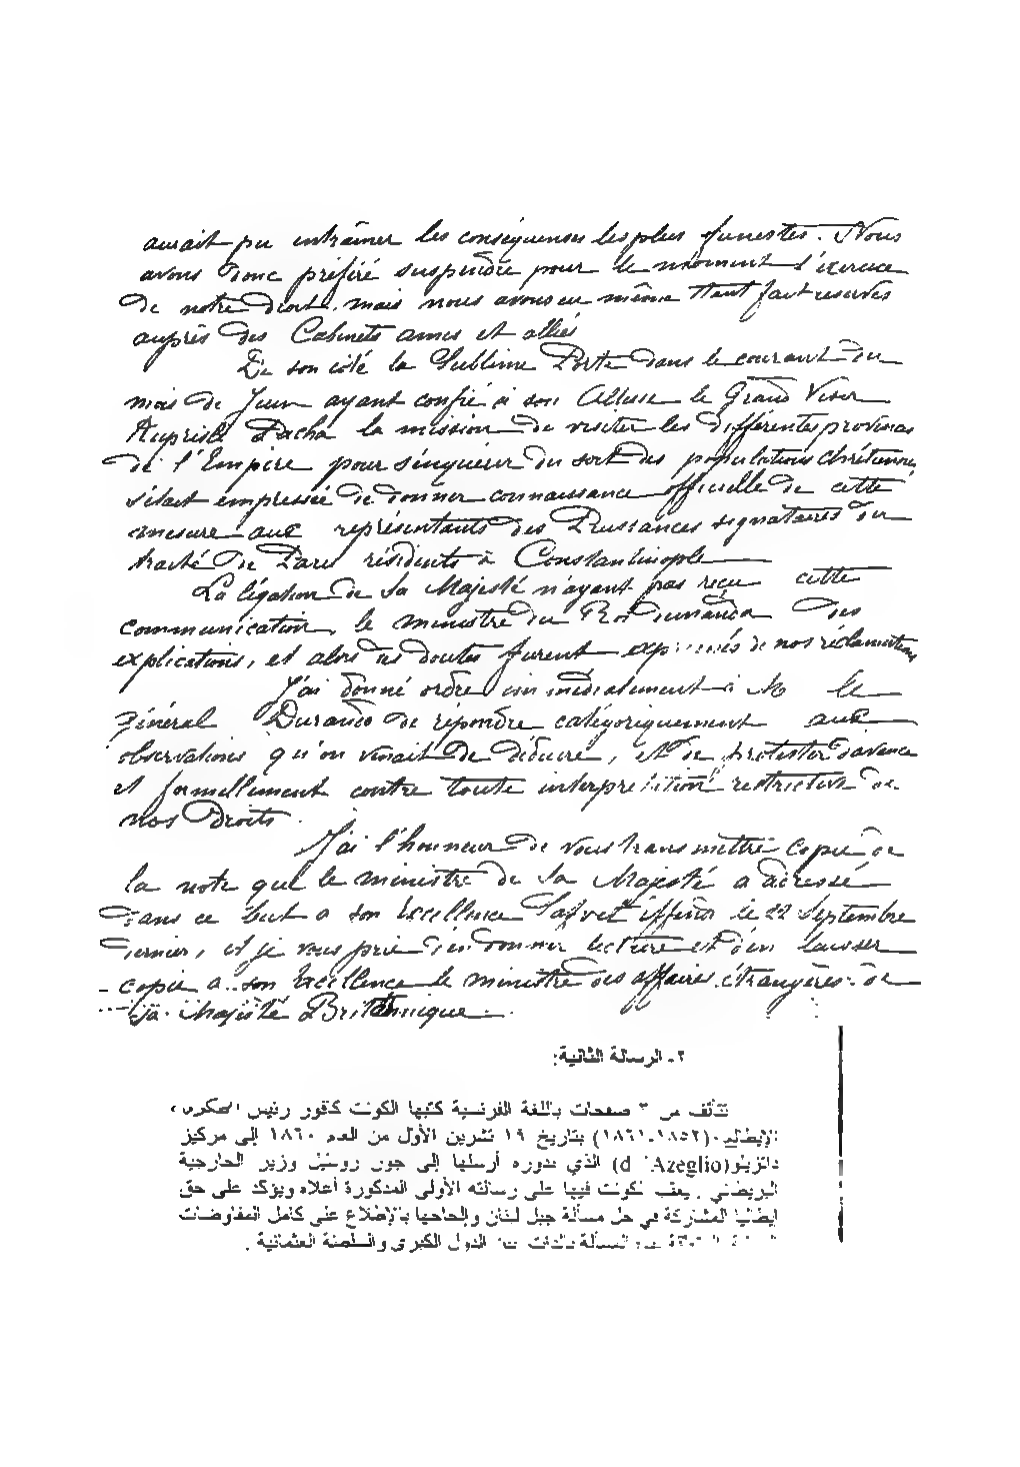 aurait pu entraîner les conséquences les plus funestes. Nous
avons donc préféré suspendre pour le moment l'exercice
de notre droit, mais nous avons en même tant fait reserves
auprès des Cabinets amis et alliés
De son côté la Sublime Porte dans le courant du
mois de Juin ayant confié à son Altesse le Grand Visir
Kuprisli Pacha la mission de visiter les différentes provinces
de l'Empire pour s'inquerir du sort des populations chrétiennes,
s'était empressée de donner connaissance officielle de cette
mesure aux représentants des Puissances signataires du
traité de Paris résidents à Constantinople
La légation de Sa Majesté n'ayant pas reçu cette
communication, le ministre du Roi demanda des
explications, et alors des doutes furent exprimés de nos réclamations
J'ai donné ordre immédiatement à M le
Général Durando de répondre catégoriquement aux
observations qu'on venait de déduire, et de protester d'avance
et formellement contre toute interprétation restrictive de
nos droits.
J'ai l'honneur de vous transmettre copie de
la note que le ministre de Sa Majesté a adressé
dans ce but a son Excellence Safvet effendi le 22 Septembre
dernier, et je vous prie d'en donner lecture et d'en laisser
copie a son Excellence le ministre des affaires étrangères de
sa Majesté Britannique.
٢- الرسالة الثانية:
تتألف من ٣ صفحات باللغة الفرنسية كتبها الكونت كافور رئيس الحكومة
الإيطالية (١٨٥٢-١٨٦١) بتاريخ ١٩ تشرين الأول من العام ١٨٦٠ إلى مركيز
داتزيليو (d'Azeglio) الذي بدوره أرسلها إلى جون روسيل وزير الخارجية
البريطاني. يعقب الكونت فيها على رسالته الأولى المذكورة أعلاه ويؤكد على حق
إيطاليا المشاركة في حل مسألة جبل لبنان وإلحاحها بالإطلاع على كامل المفاوضات
المسألة بالذات بين الدول الكبرى والسلطنة العثمانية.